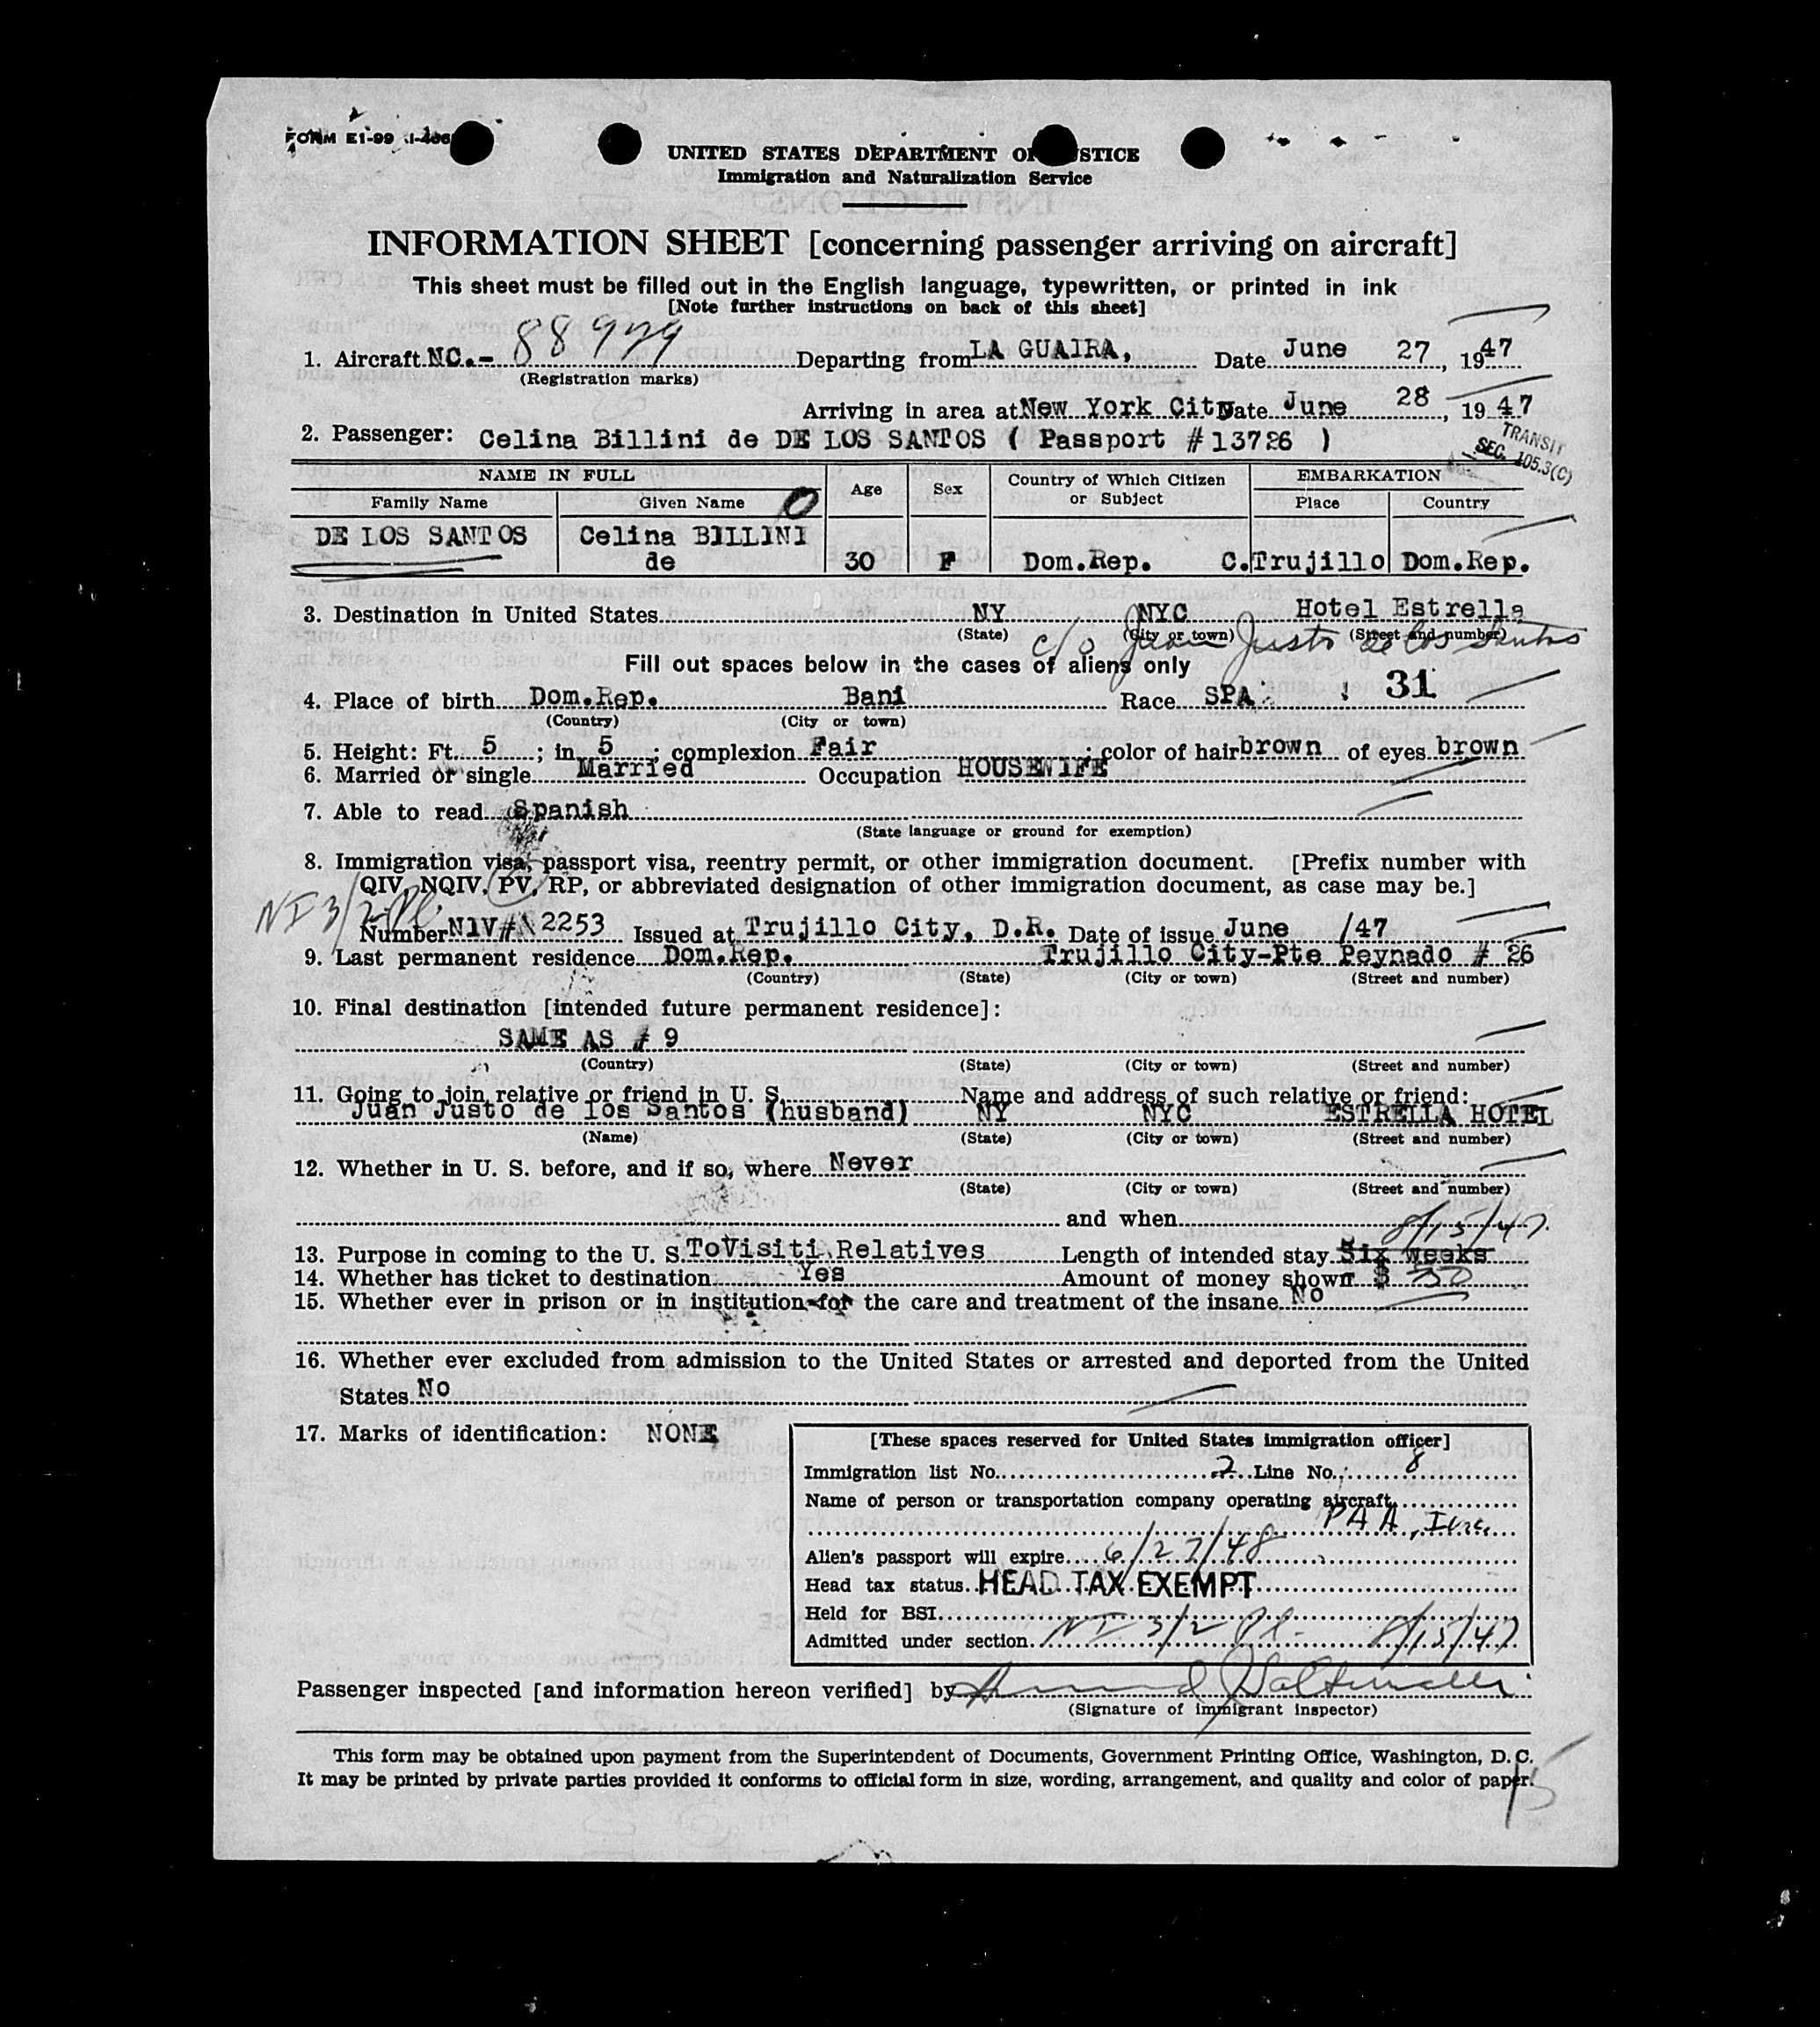 FORM E1-99
UNITED STATES DEPARTMENT OF JUSTICE
Immigration and Naturalization Service
INFORMATION SHEET [concerning passenger arriving on aircraft]
This sheet must be filled out in the English language, typewritten, or printed in ink
[Note further instructions on back of this sheet]
1. Aircraft NC.- Departing from LA GUAIRA, Date June 27, 1947
(Registration marks)
Arriving in area at New York City Date June 28, 1947
2. Passenger: Celina Billini de DE LOS SANTOS ( Passport # 13726 )
TRANSIT
SEC. 105.3(C)
NAME IN FULL Age Sex Country of Which Citizen or Subject EMBARKATION
Family Name Given Name Place Country
DE LOS SANTOS Celina BILLINI
de 30 F Dom.Rep. C.Trujillo Dom.Rep.
3. Destination in United States NY NYC Hotel Estrella
(State) (City or town) (Street and number)
c/o Juan Justo de los Santos
Fill out spaces below in the cases of aliens only
31
4. Place of birth Dom.Rep. Bani Race SPA
(Country) (City or town)
5. Height: Ft. 5 ; in 5 ; complexion Fair ; color of hair brown of eyes brown
6. Married or single Married Occupation HOUSEWIFE
7. Able to read Spanish
(State language or ground for exemption)
8. Immigration visa, passport visa, reentry permit, or other immigration document. [Prefix number with
QIV, NQIV, PV, RP, or abbreviated designation of other immigration document, as case may be.]
NI 3/2 Pl.
Number N1V# 2253 Issued at Trujillo City, D.R. Date of issue June /47
9. Last permanent residence Dom.Rep. Trujillo City-Pte Peynado # 26
(Country) (State) (City or town) (Street and number)
10. Final destination [intended future permanent residece]:
SAME AS # 9
(Country) (State) (City or town) (Street and number)
11. Going to join relative or friend in U. S. Name and address of such relative or friend:
Juan Justo de los Santos (husband) NY NYC ESTRELLA HOTEL
(Name) (State) (City or town) (Street and number)
12. Whether in U. S. before, and if so, where Never
(State) (City or town) (Street and number)
and when
8/15/47.
13. Purpose in coming to the U. S. ToVisiti Relatives Length of intended stay Six weeks
14. Whether has ticket to destination Yes Amount of money shown $ 50
15. Whether ever in prison or in institution for the care and treatment of the insane No
16. Whether ever excluded from admission to the United States or arrested and deported from the United
States No
17. Marks of identification: NONE
[These spaces reserved for United States immigration officer]
Immigration list No. 2 Line No. 8
Name of person or transportation company operating aircraft
PAA, Inc.
Alien's passport will expire 6/27/48
Head tax status HEAD TAX EXEMPT
Held for BSI
Admitted under section NI 3/2 Pl. 8/15/47
Passenger inspected [and information hereon verified] by
(Signature of immigrant inspector)
This form may be obtained upon payment from the Superintendent of Documents, Government Printing Office, Washington, D. C.
It may be printed by private parties provided it conforms to official form in size, wording, arrangement, and quality and color of paper.